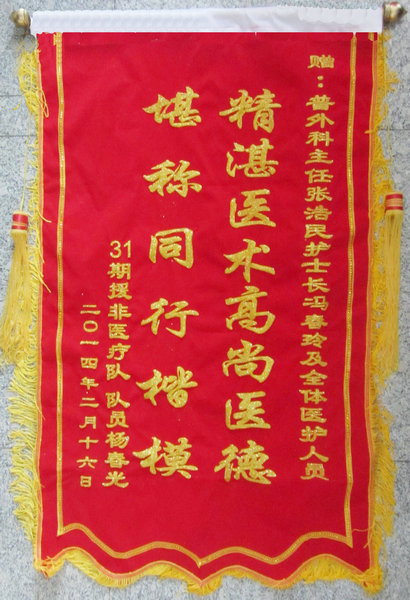 赠：普外科主任张浩民护士长冯春玲及全体医护人员
精湛医术高尚医德
堪称同行楷模
31期援非医疗队队员杨春光
二〇一四年二月十六日